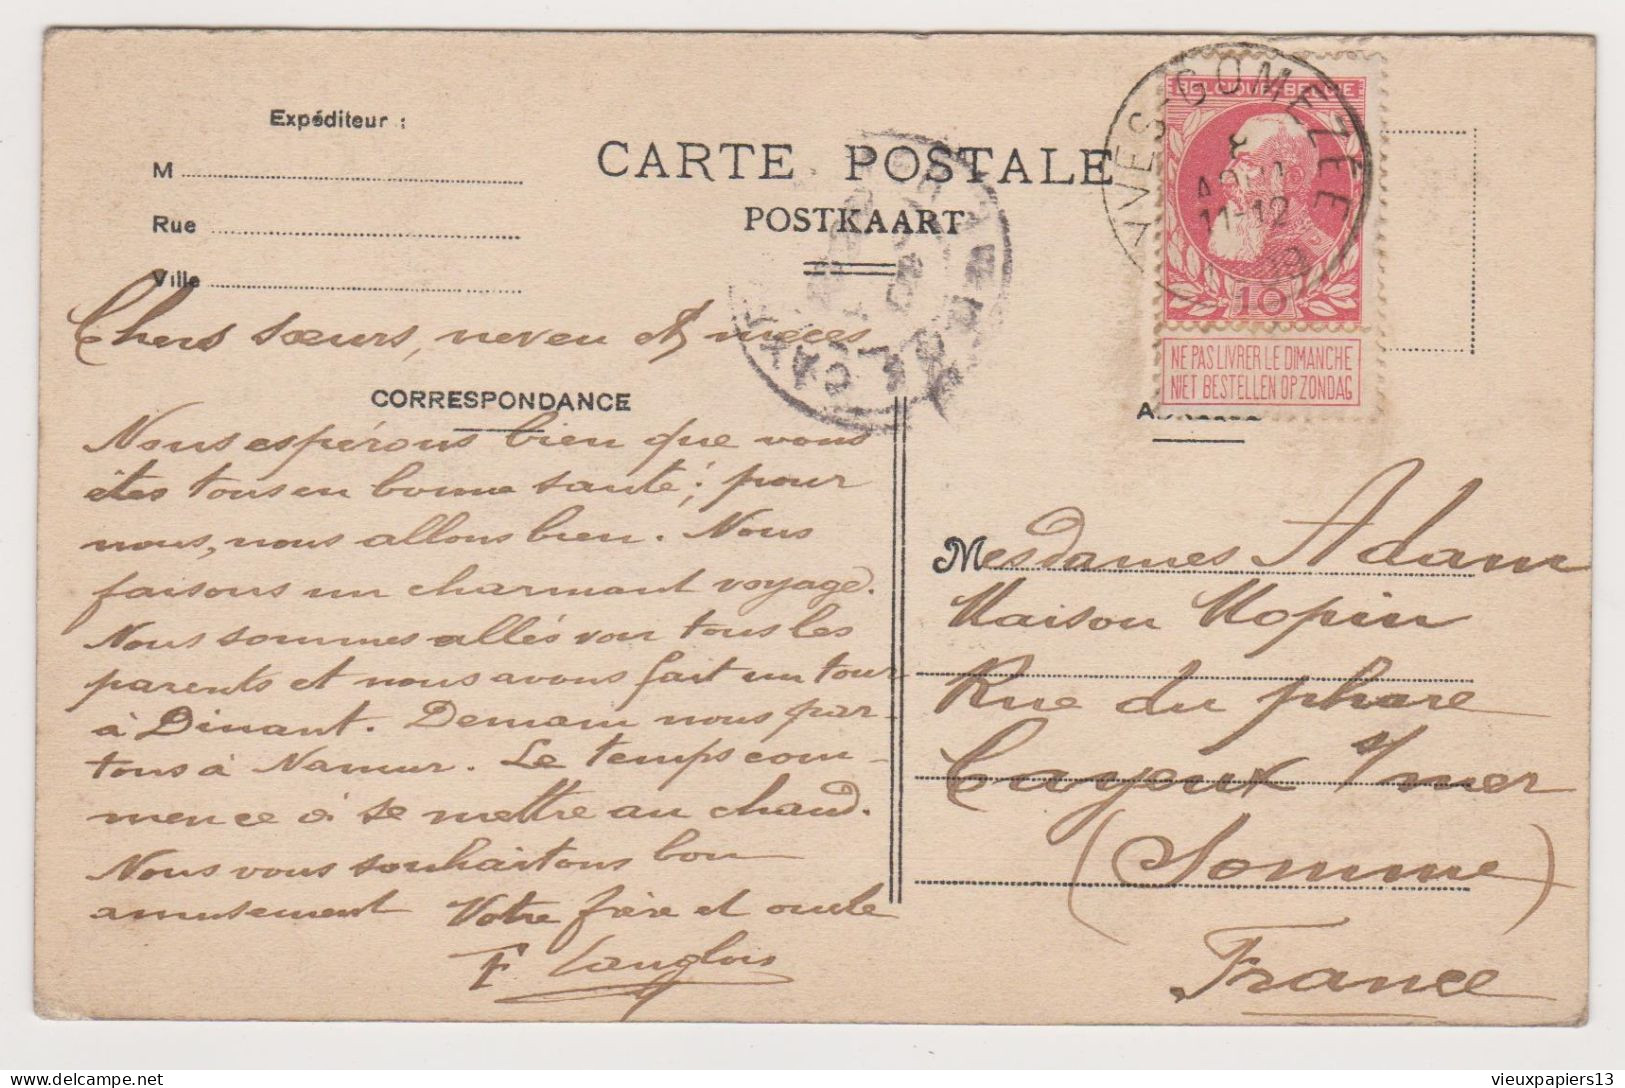 CARTE POSTALE
POSTKAART
Expéditeur :
M
Rue
Ville
YVES-GOMEZEE
11-12
BELGIQUE BELGIE
10
NE PAS LIVRER LE DIMANCHE
NIET BESTELLEN OP ZONDAG
Chers sœurs, neveu et nièces
CORRESPONDANCE
Nous espérons bien que vous
êtes tous en bonne santé; pour
nous, nous allons bien. Nous
faisons un charmant voyage.
Nous sommes allés voir tous les
parents et nous avons fait un tour
à Dinant. Demain nous par-
tons à Namur. Le temps com-
mence à se mettre au chaud.
Nous vous souhaitons bon
amusement Votre frère et oncle
F. Langlois
Mesdames Adam
Maison Mopin
Rue du phare
Cayeux s/mer
(Somme)
France
vieuxpapiers13